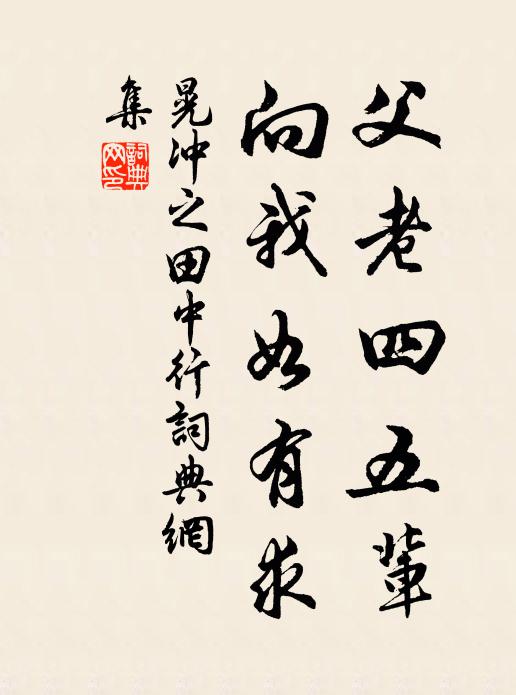 父老四五輩
向我如有求
晃冲之田中行詞典網
集
詞典網印